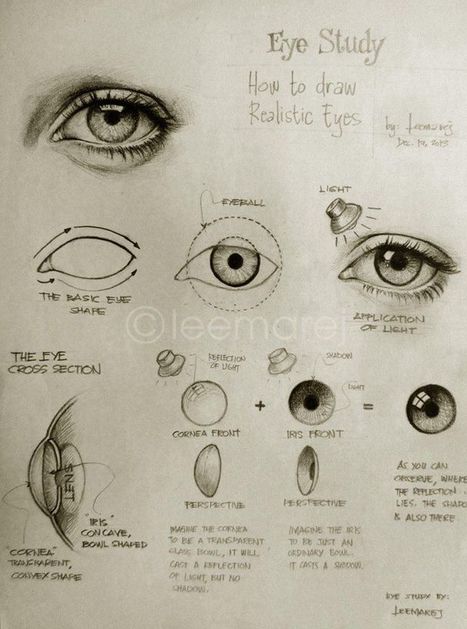 Eye Study
How to draw
Realistic Eyes
by: leemarej
Dec. 19, 2013
LIGHT
EYEBALL
THE BASIC EYE
SHAPE
APPLICATION
OF LIGHT
©leemarej
THE EYE
CROSS SECTION
REFLECTION
OF LIGHT
SHADOW
LIGHT
+
=
CORNEA FRONT
IRIS FRONT
LENS
PERSPECTIVE
PERSPECTIVE
AS YOU CAN
OBSERVE, WHERE
THE REFLECTION
LIES. THE SHADO
IS ALSO THERE
"IRIS"
CONCAVE,
BOWL SHAPED
"CORNEA"
TRANSPARENT,
CONVEX SHAPE
IMAGINE THE CORNEA
TO BE A TRANSPARENT
GLASS BOWL, IT WILL
CAST A REFLECTION
OF LIGHT, BUT NO
SHADOW.
IMAGINE THE IRIS
TO BE JUST AN
ORDINARY BOWL.
IT CASTS A SHADOW.
EYE STUDY BY:
LEEMAREJ